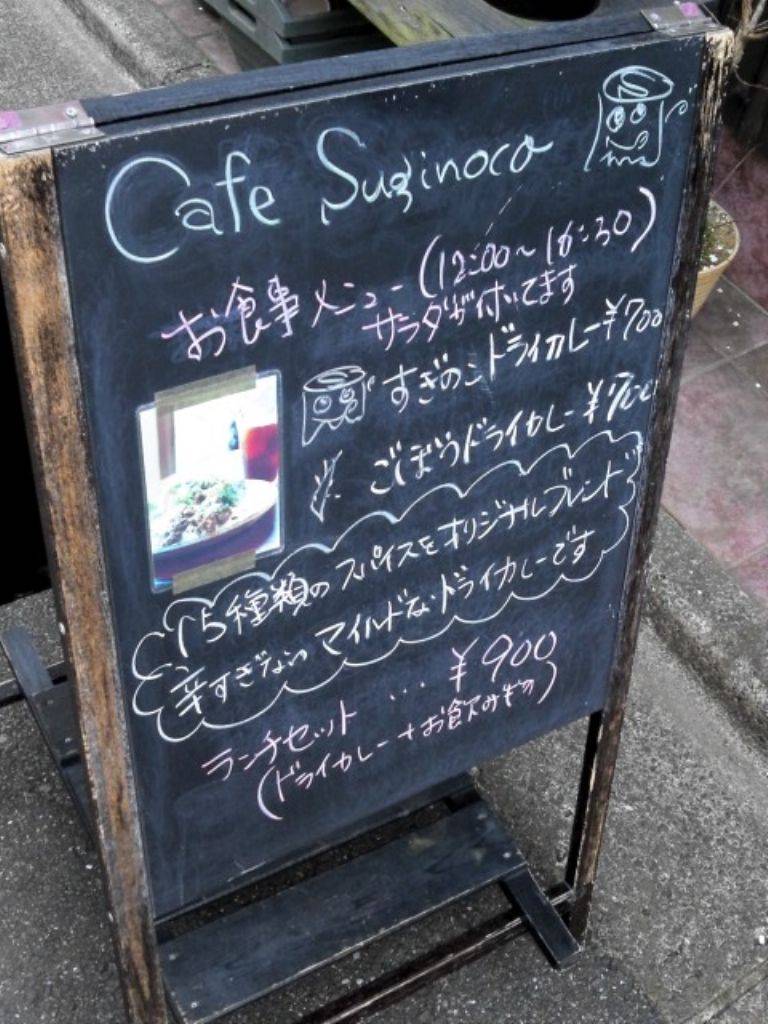 Cafe Suginoco
お食事メニュー(12:00～16:30)
サラダが付いてます
すぎのこドライカレー¥700
ごぼうドライカレー¥700
15種類のスパイスをオリジナルブレンド
辛すぎないマイルドなドライカレーです
ランチセット … ¥900
(ドライカレー+お飲みもの)